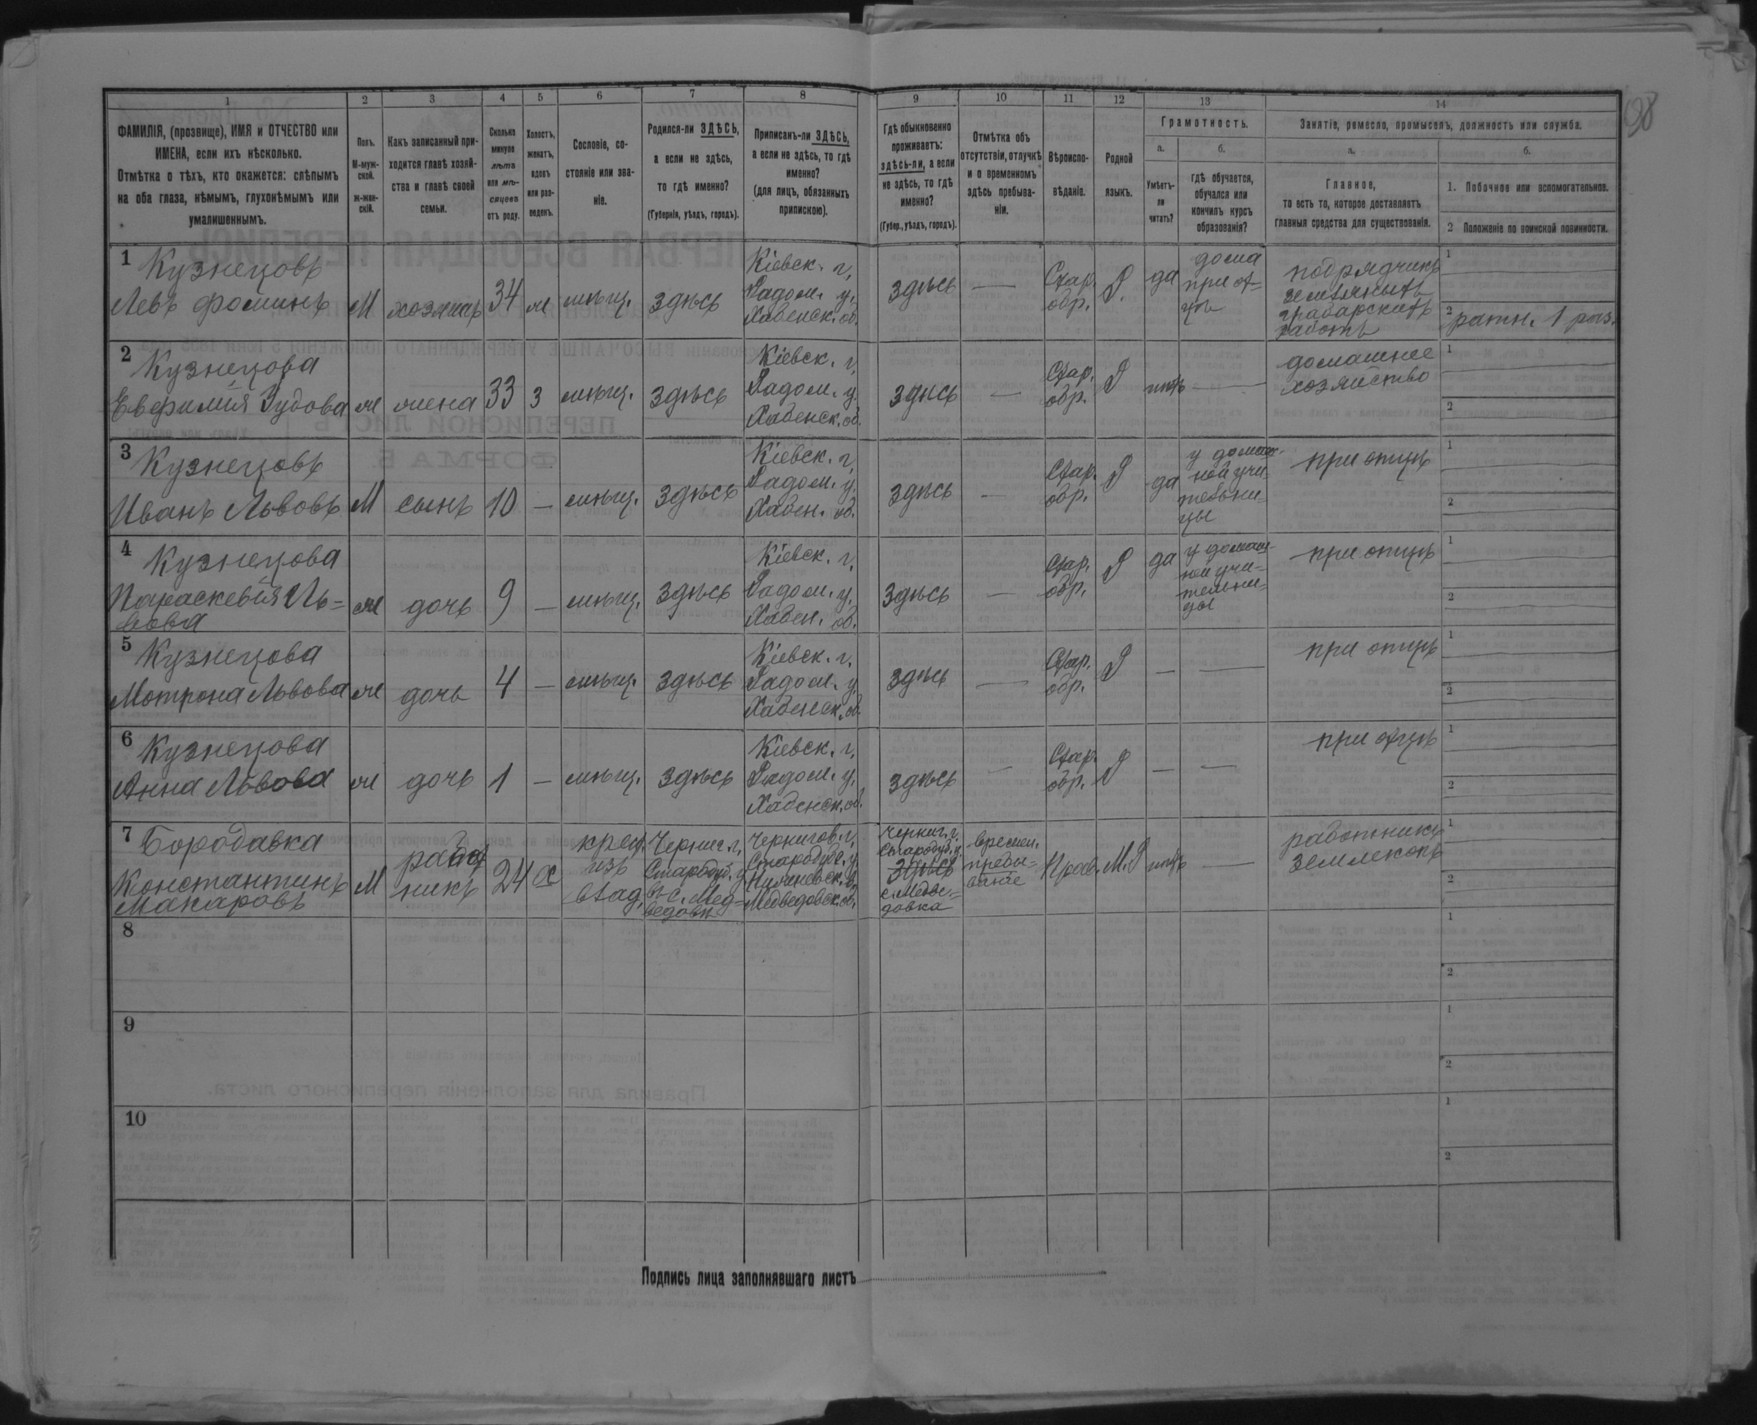 98
1 2 3 4 5 6 7 8 9 10 11 12 13 14
ФАМИЛІЯ, (прозвище), ИМЯ и ОТЧЕСТВО или
ИМЕНА, если ихъ нѣсколько.
Отмѣтка о тѣхъ, кто окажется: слѣпымъ
на оба глаза, нѣмымъ, глухонѣмымъ или
умалишеннымъ.
Полъ.
М-муж-
ской.
ж-жен-
скій.
Какъ записанный при-
ходится главѣ хозяй-
ства и главѣ своей
семьи.
Сколько
минуло
лѣтъ
или мѣ-
сяцевъ
отъ роду.
Холостъ,
женатъ,
вдовъ
или раз-
веденъ.
Сословіе, со-
стояніе или зва-
ніе.
Родился-ли ЗДѢСЬ,
а если не здѣсь,
то гдѣ именно?
(Губернія, уѣздъ, городъ).
Приписанъ-ли ЗДѢСЬ,
а если не здѣсь, то гдѣ
именно?
(для лицъ, обязанныхъ
припискою).
Гдѣ обыкновенно
проживаетъ:
здѣсь-ли, а если
не здѣсь, то гдѣ
именно?
(Губер., уѣздъ, городъ).
Отмѣтка объ
отсутствіи, отлучкѣ
и о временномъ
здѣсь пребыва-
ніи.
Вѣроиспо-
вѣданіе.
Родной
языкъ.
Грамотность.
а.
Умѣетъ-
ли
читать?
б.
Гдѣ обучается,
обучался или
кончилъ курсъ
образованія?
Занятіе, ремесло, промыселъ, должность или служба.
а.
Главное,
то есть то, которое доставляетъ
главныя средства для существованія.
б.
1. Побочное или вспомогательное.
2 Положеніе по воинской повинности.
1 Кузнецовъ
Левъ Фоминъ
М
хозяинъ
34
ж
мѣщ.
здѣсь
Кіевск. г.
Радом. у.
Хабенск. об.
здѣсь
—
Стар.
обр.
Р.
да
дома
при от-
цѣ
подрядчикъ
земляныхъ
грабарскихъ
работъ
1
2 ратн. 1 раз.
2 Кузнецова
Евфимія Зубова
ж
жена
33
З
мѣщ.
здѣсь
Кіевск. г.
Радом. у.
Хабенск. об.
здѣсь
—
Стар.
обр.
Р
нѣтъ
—
домашнее
хозяйство
1
2
3 Кузнецовъ
Иванъ Львовъ
М
сынъ
10
—
мѣщ.
здѣсь
Кіевск. г.
Радом. у.
Хабен. об.
здѣсь
—
Стар.
обр.
Р
да
у домаш-
ной учи-
тельни-
цы
при отцѣ
1
2
4 Кузнецова
Параскевія Ль-
вова
ж
дочь
9
—
мѣщ.
здѣсь
Кіевск. г.
Радом. у.
Хабен. об.
здѣсь
—
Стар.
обр.
Р
да
у домаш-
ной учи-
тельни-
цы
при отцѣ
1
2
5 Кузнецова
Мотрона Львова
ж
дочь
4
—
мѣщ.
здѣсь
Кіевск. г.
Радом. у.
Хабенск. об.
здѣсь
—
Стар.
обр.
Р
—
—
при отцѣ
1
2
6 Кузнецова
Анна Львова
ж
дочь
1
—
мѣщ.
здѣсь
Кіевск. г.
Радом. у.
Хабенск. об.
здѣсь
—
Стар.
обр.
Р
—
—
при отцѣ
1
2
7 Бородавка
Константинъ
Макаровъ
М
работ
никъ
24
х
крец.
изъ
влад.
Черниг. г.
Стародуб. у.
в с. Мед-
ведовкѣ
Чернигов. г.
Стародуб. у.
Медведовск. об.
Черниг. г.
Стародуб. у.
здѣсь
с. Медве-
довка
времен.
пребы-
ваніе
Прав.
М. Р
нѣтъ
—
работникъ
землекопъ
1
2
8
1
2
9
1
2
10
1
2
Подпись лица заполнявшаго листъ